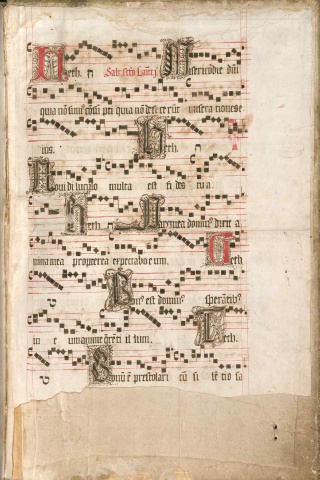 Heth. Sab. sctō Lam̄ j. Misericordie dn̄i
quia nō sum̄ cōsūpti quia nō defecerūt miseraciones e
ius. Heth.
Noui diluculo multa est fides tua.
Heth. Pars mea dominꝰ dixit a
nima mea propterea expectabo eum. Teth
Bonꝰ est dominꝰ sperātibꝰ
in eum anime q̄renti illum. Teth.
Bonū ē prestolari cū silētio sa